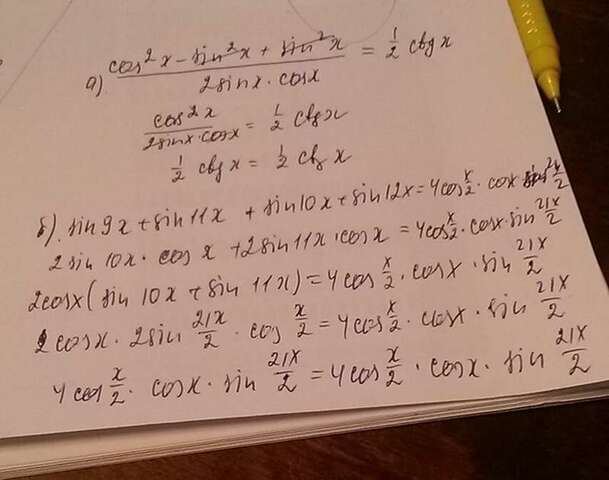 а) (cos²x - sin²x + sin²x)/(2sinx · cosx) = 1/2 ctg x
cos²x/(2sinx·cosx) = 1/2 ctgx
1/2 ctg x = 1/2 ctg x
б). sin 9x + sin 11x + sin 10x + sin 12x = 4cos x/2 · cosx
2 sin 10x · cos x + 2 sin 11x · cosx = 4cos x/2 · cosx · sin 21x/2
2cosx (sin 10x + sin 11x) = 4 cos x/2 · cosx · sin 21x/2
2 cosx · 2sin 21x/2 · cos x/2 = 4cos x/2 · cosx · sin 21x/2
4 cos x/2 · cosx · sin 21x/2 = 4cos x/2 · cosx · sin 21x/2